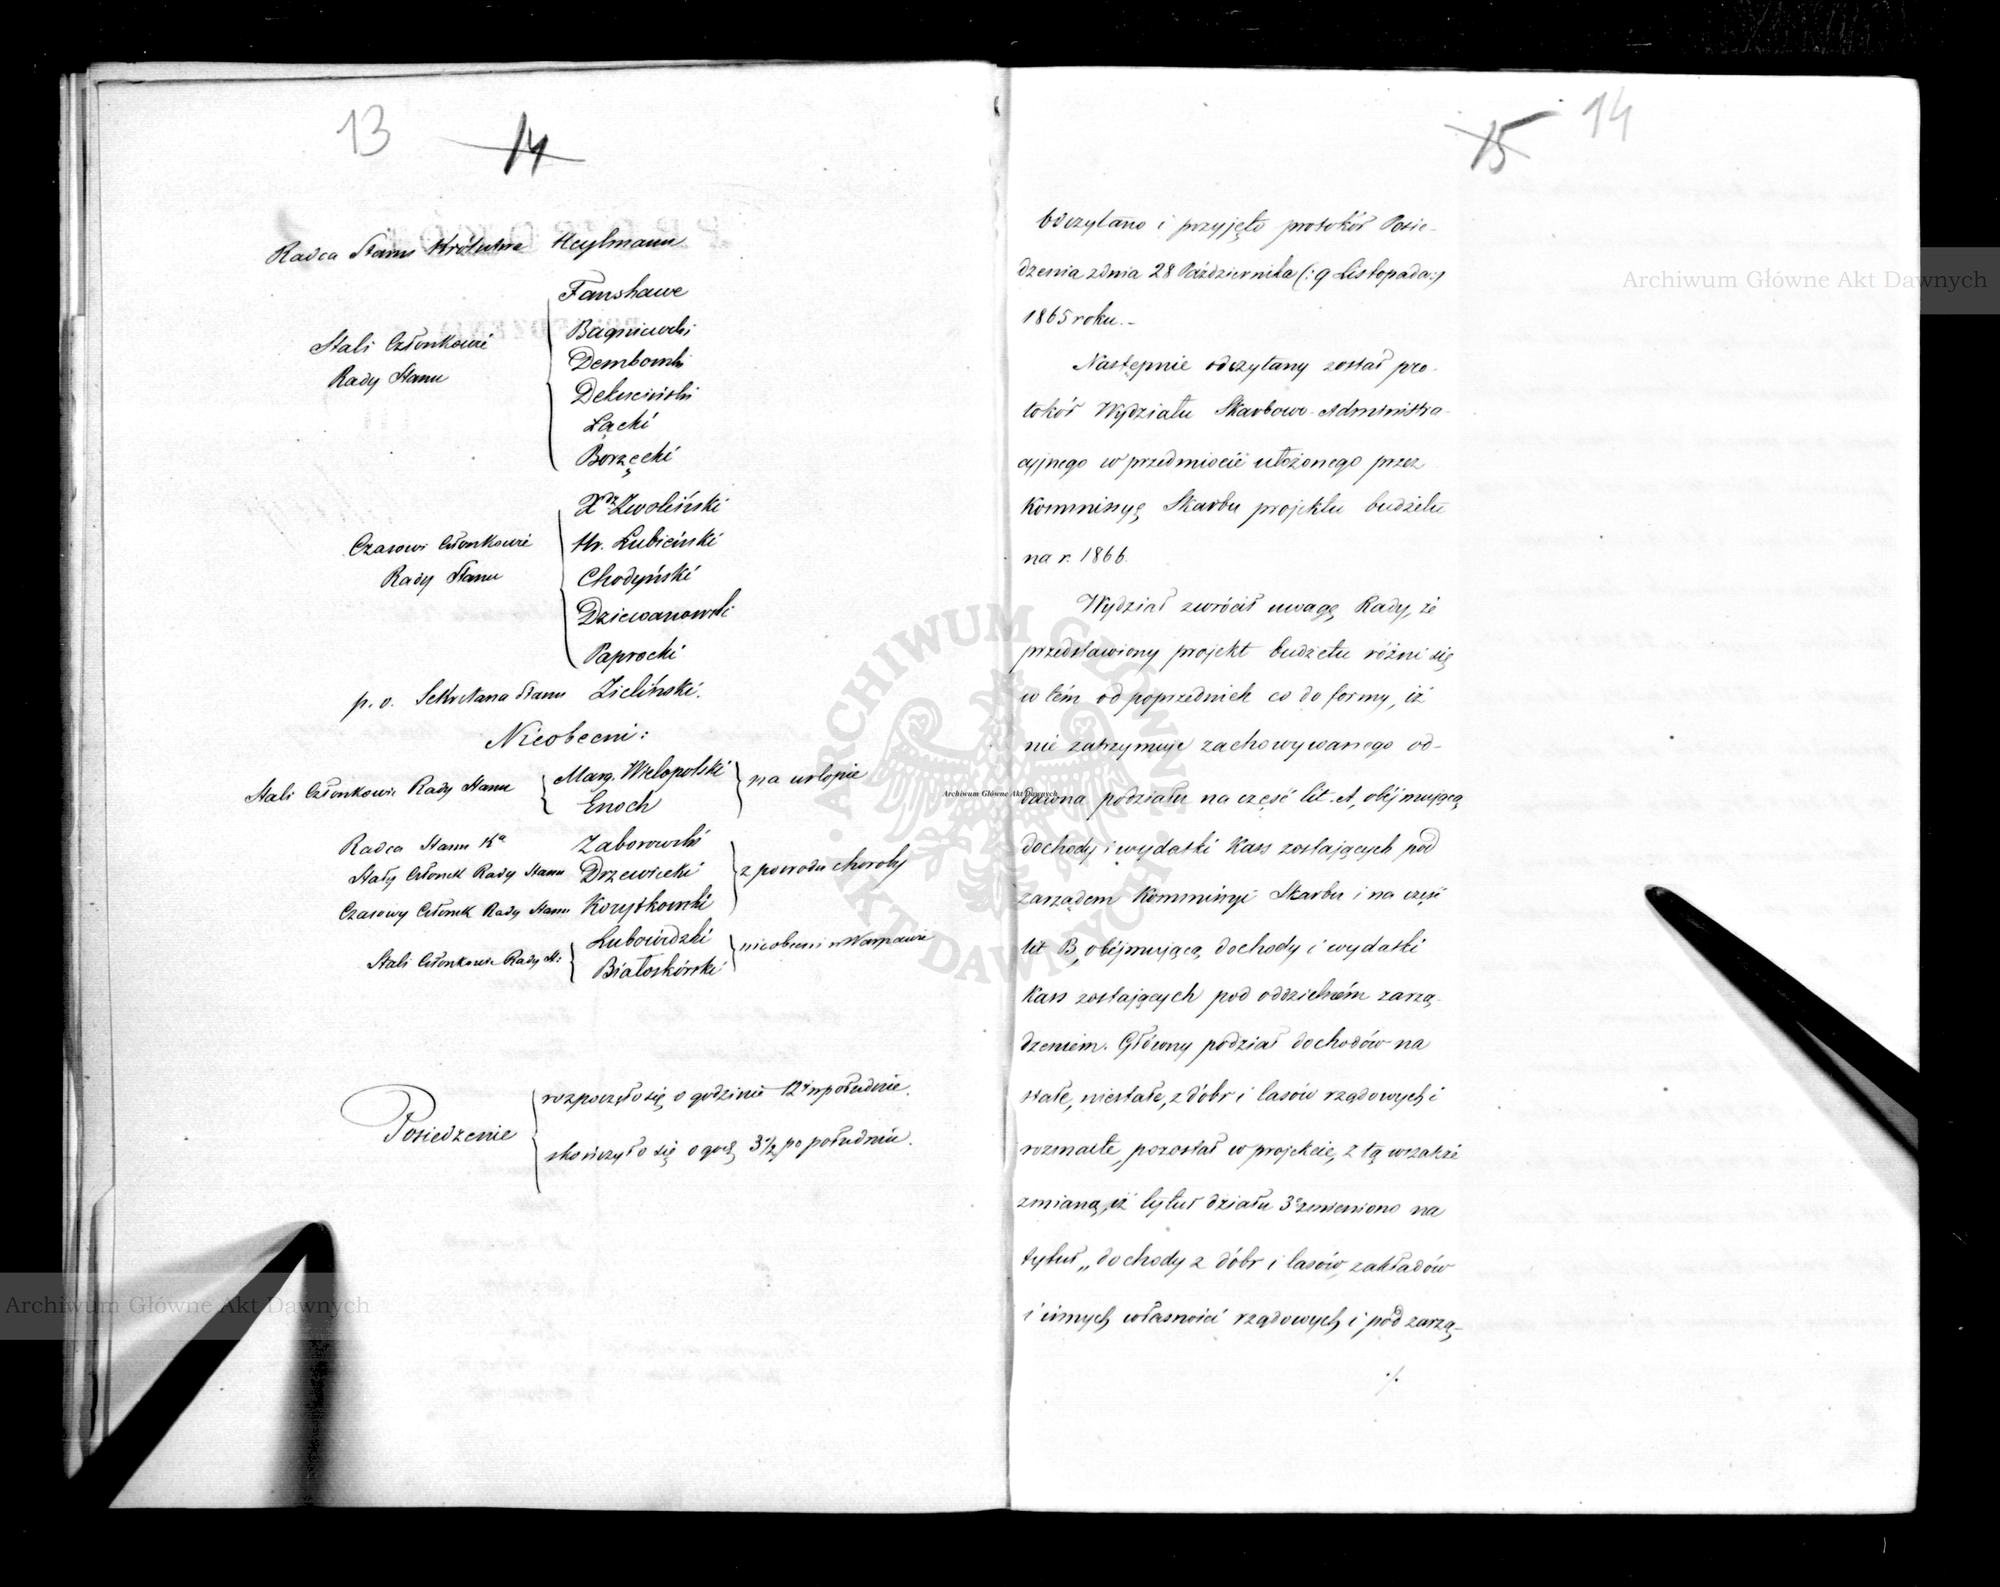 13 14
Radca Stanu Królestwa Heylmann
Stali Członkowie
Rady Stanu
Fanshawe
Bagniewski
Dembowski
Łącki
Borzęcki
Czasowi Członkowie
Rady Stanu
Xdz Zwoliński
Hr. Łubieński
Chodyński
Dziewanowski
Paprocki
p. o. Sekretarza Stanu Zieliński.
Nieobecni:
Stali Członkowie Rady Stanu
Marg. Wielopolski
Enoch
na urlopie
Radca Stanu Ka Zaborowski
Stały Członek Rady Stanu Drzewiecki
Czasowy Członek Rady Stanu Korytkowski
z powodu choroby
Stali Członkowie Rady St:
Łubowidzki
Białoskórski
nieobecni w Warszawie
Posiedzenie
rozpoczęło się o godzinie 12 w południe.
skończyło się o godz 3 1/2 po południu.
15 14
Odczytano i przyjęto protokół Posie-
dzenia z dnia 28 Października (: 9 Listopada:)
1865 roku.-
Następnie odczytany został pro-
tokół Wydziału Skarbowo-Administra-
cyjnego w przedmiocie ułożonego przez
Kommissyę Skarbu projektu budżetu
na r. 1866.
Wydział zwrócił uwagę Rady, że
przedstawiony projekt budżetu różni się
w tém od poprzednich co do formy, iż
nie zatrzymuje zachowywanego od-
dawna podziału na część lit. A, obejmującą
dochody i wydatki Kass zostających pod
zarządem Kommissyi Skarbu i na część
lit B, obejmującą dochody i wydatki
Kass zostających pod oddzielném zarzą-
dzeniem. Główny podział dochodów na
stałe, niestałe, z dóbr i lasów rządowych i
rozmaite, pozostał w projekcie, z tą wszakże
zmianą, iż tytuł działu 3o zmieniono na
tytuł „dochody z dóbr i lasów, zakładów
i innych własności rządowych, i pod zarzą-
./.
Archiwum Główne Akt Dawnych
Archiwum Główne Akt Dawnych
Archiwum Główne Akt Dawnych
ARCHIWUM GŁÓWNE AKT DAWNYCH